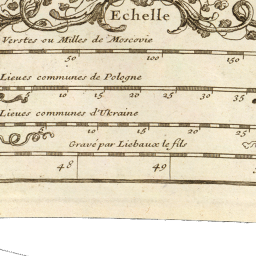 Echelle
Verstes ou Milles de Moscovie
50 100 150
Lieues communes de Pologne
5 10 15 20 25 30 35
Lieues communes d'Ukraine
5 10 15 20 25
Gravé par Liebaux le fils
48 49